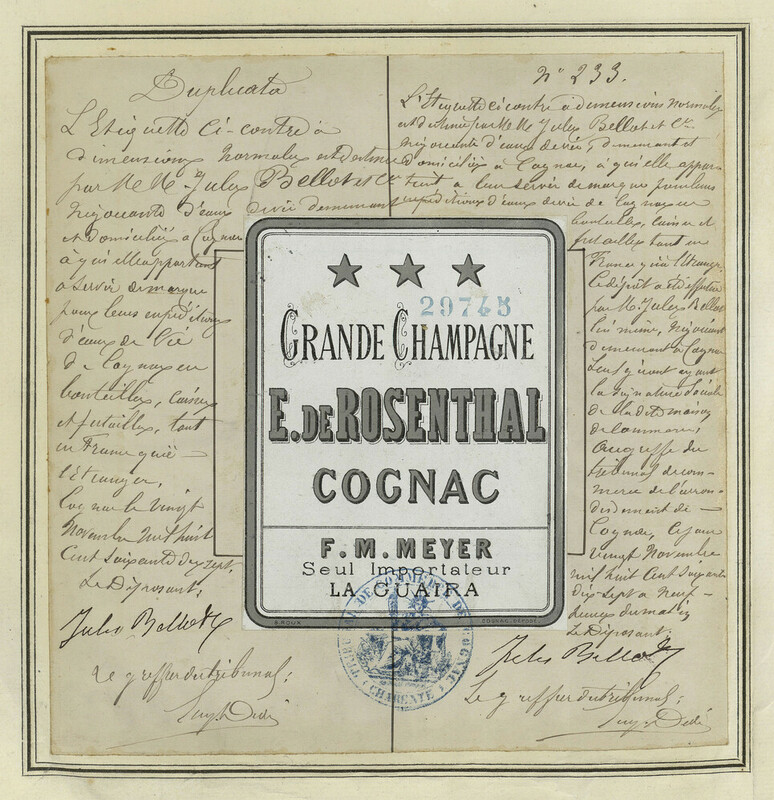 Duplicata
L'Etiquette ci-contre à
dimensions normales est destinée
par M.M. Jules Bellot et Cie
négociants d'eaux de vie demeurant
et domiciliés à Cognac
à qui elle appartient
à servir de marque
pour leurs expéditions
d'eaux de Vie
de Cognac en
bouteilles, caisses
et futailles, tant
en France qu'à
l'Etranger.
Cognac le vingt
Novembre mil huit
Cent soixante dix sept.
Le Déposant,
Jules Bellot
Le greffier du tribunal,
N° 233.
L'Etiquette ci contre à dimensions normales
est destinée par M.M. Jules Bellot et Cie
négociants d'eaux de vie, demeurant et
domiciliés à Cognac, à qui elle appar
tient à leur servir de marque pour leurs
expéditions d'eaux de vie de Cognac en
bouteilles, caisses et
futailles tant en
France qu'à l'Etranger.
Le dépôt a été effectué
par M. Jules Bellot
lui même, négociant
demeurant à Cognac
ayant
la signature sociale
de la dite maison
de Commerce,
au greffe du
tribunal de com-
merce de l'arron-
dissement de
Cognac, ce jour
vingt Novembre
mil huit Cent soixante
dix-sept à neuf
heures du matin
Le Déposant:
Jules Bellot
Le greffier du tribunal,
29745
GRANDE CHAMPAGNE
E. DE ROSENTHAL
COGNAC
F. M. MEYER
Seul Importateur
LA GUAIRA
B. ROUX
COGNAC, DÉPOSÉ
TRIBUNAL DE COMMERCE DE COGNAC
(CHARENTE)